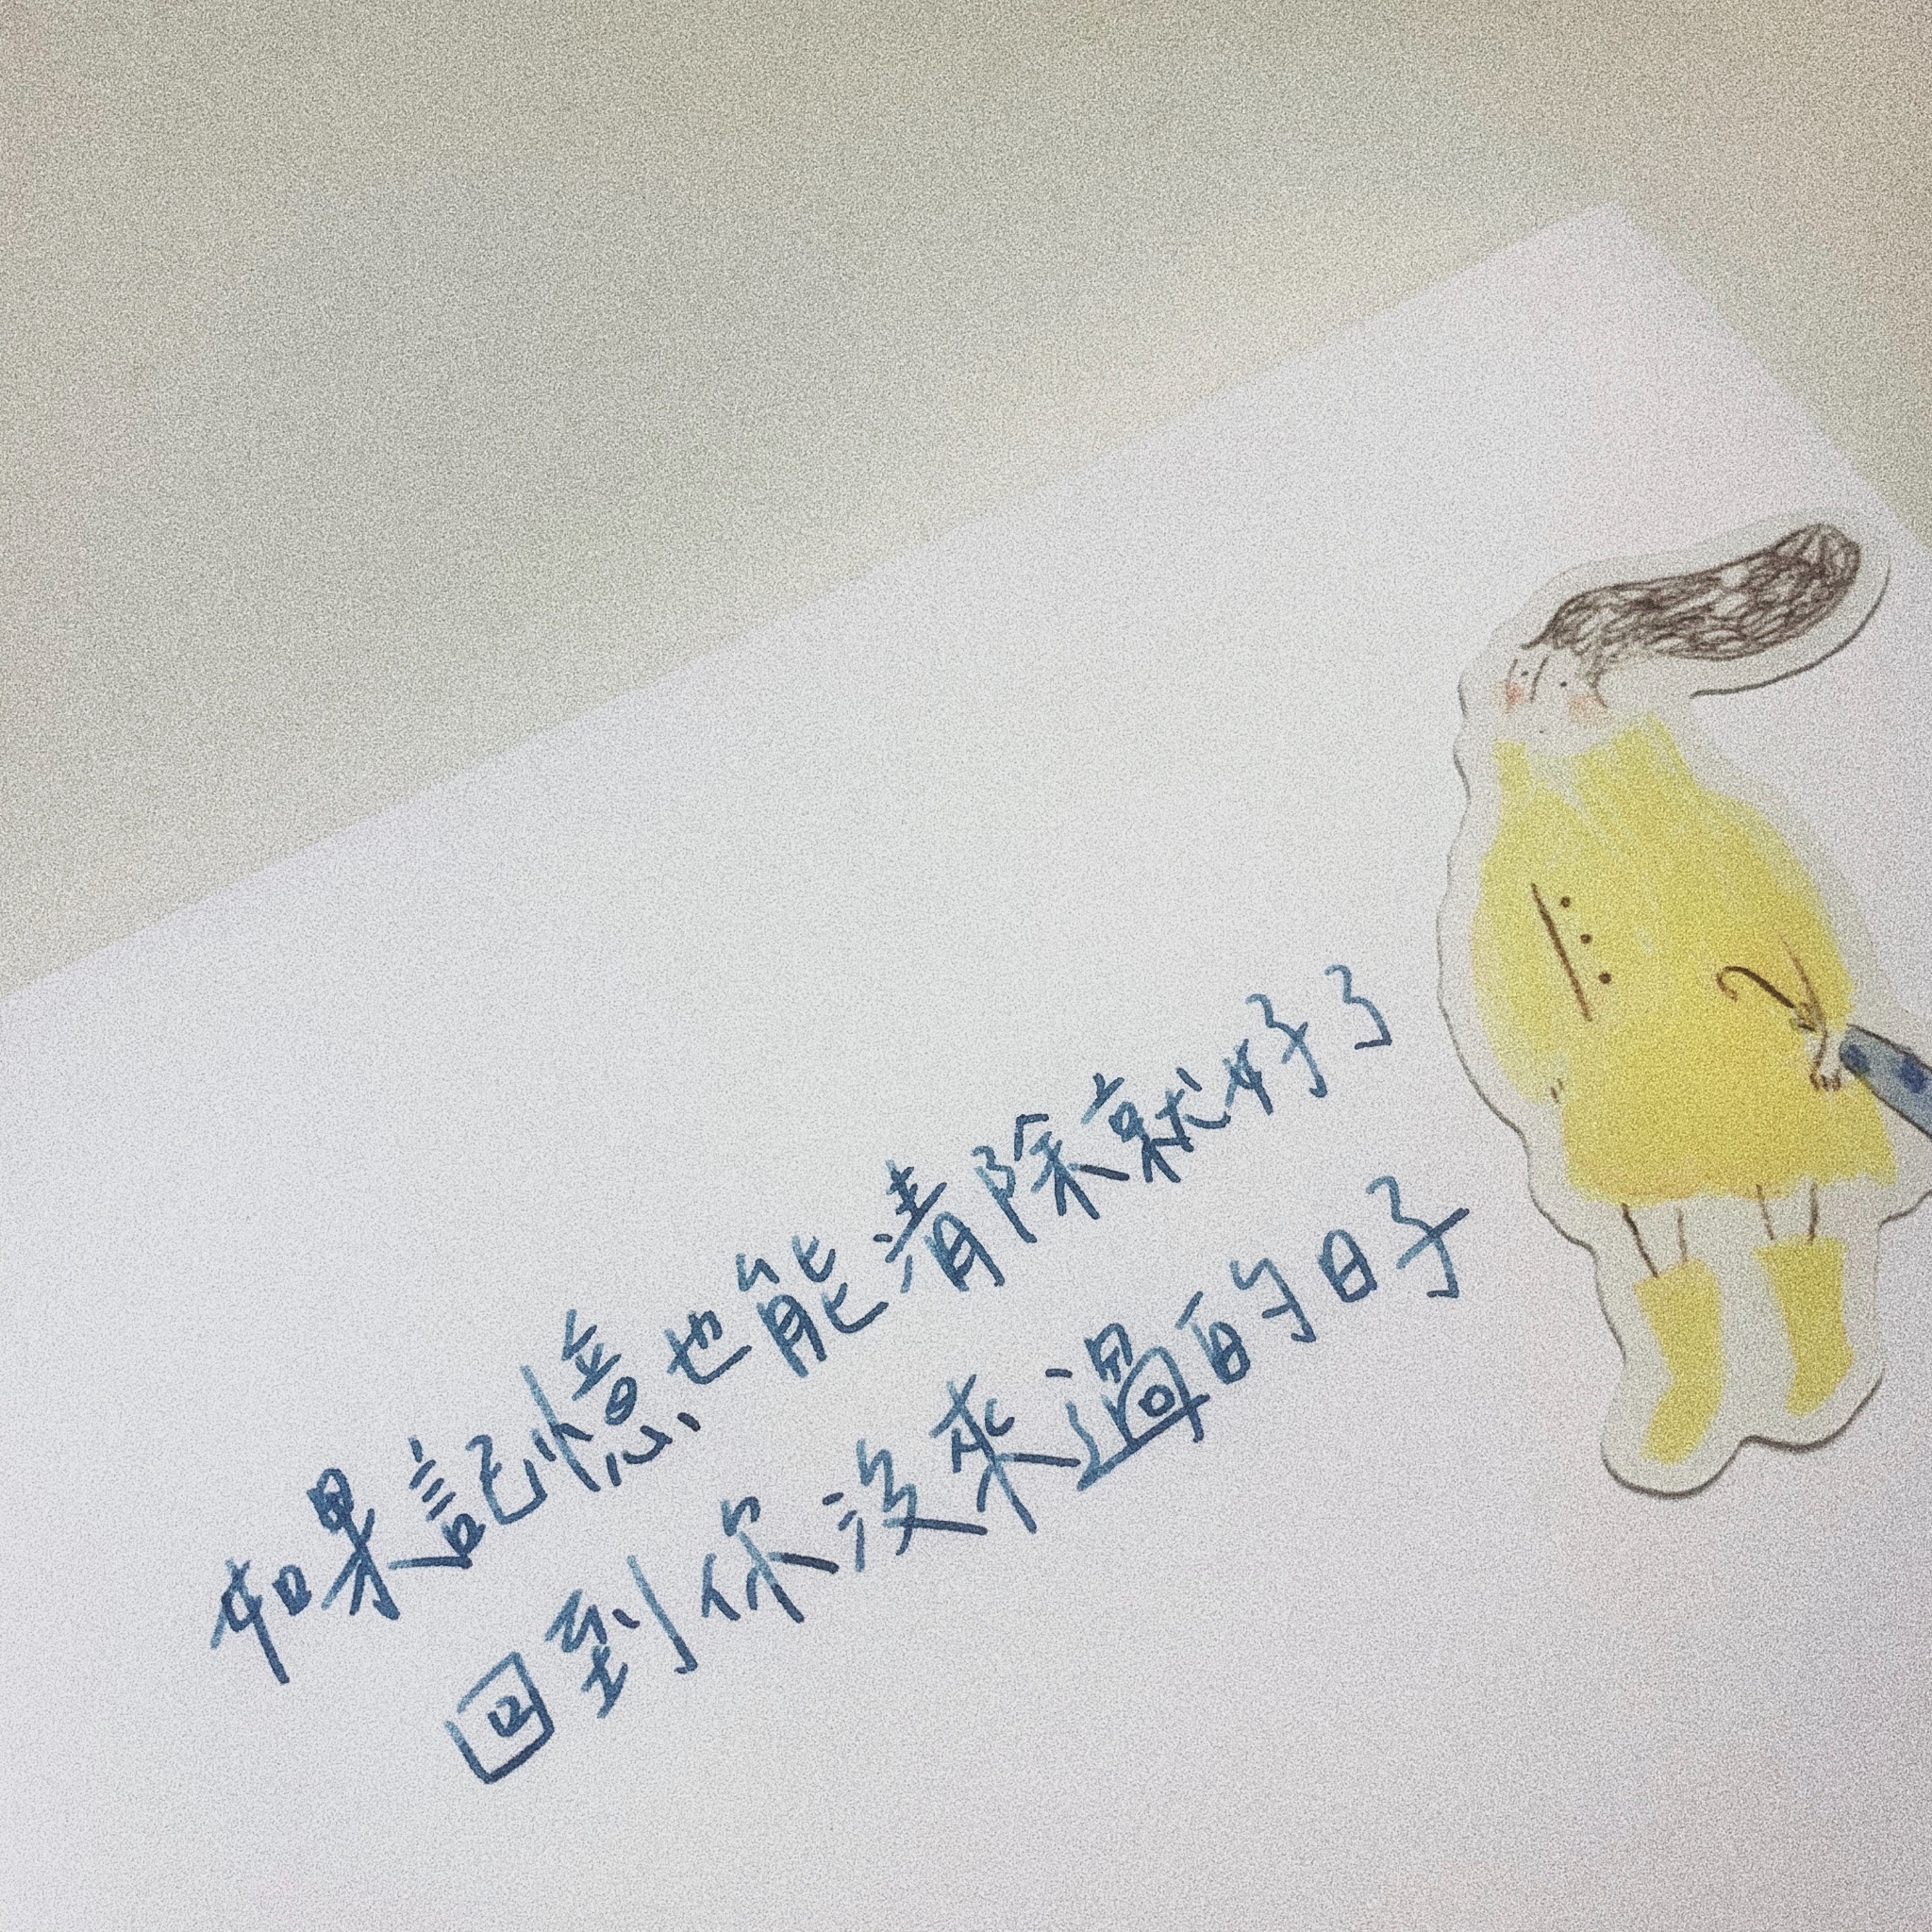 如果記憶也能清除就好了
回到你沒來過的日子